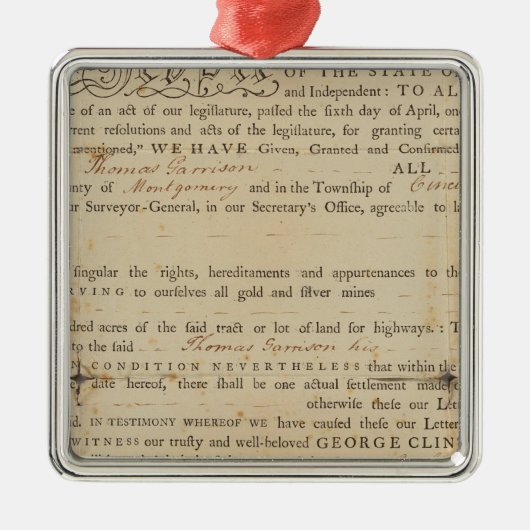 OF THE STATE O
and Independent: TO AL
e of an act of our legiſlature, paſſed the ſixth day of April, on
rrent reſolutions and acts of the legiſlature, for granting certa
mentioned,” WE HAVE Given, Granted and Confirmed
Thomas Garrison ALL
unty of Montgomery and in the Townſhip of Cinci
ur Surveyor-General, in our Secretary's Office, agreeable to la
ſingular the rights, hereditaments and appurtenances to the
RVING to ourſelves all gold and ſilver mines
dred acres of the ſaid tract or lot of land for highways. : T
to the ſaid Thomas Garrison his
N CONDITION NEVERTHELESS that within the
date hereof, there ſhall be one actual ſettlement made
otherwiſe theſe our Lett
id. IN TESTIMONY WHEREOF WE have cauſed theſe our Letter
WITNESS our truſty and well-beloved GEORGE CLIN